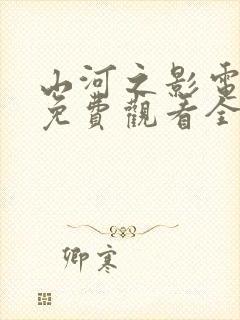 山河之影電
免費觀看全
卿寒